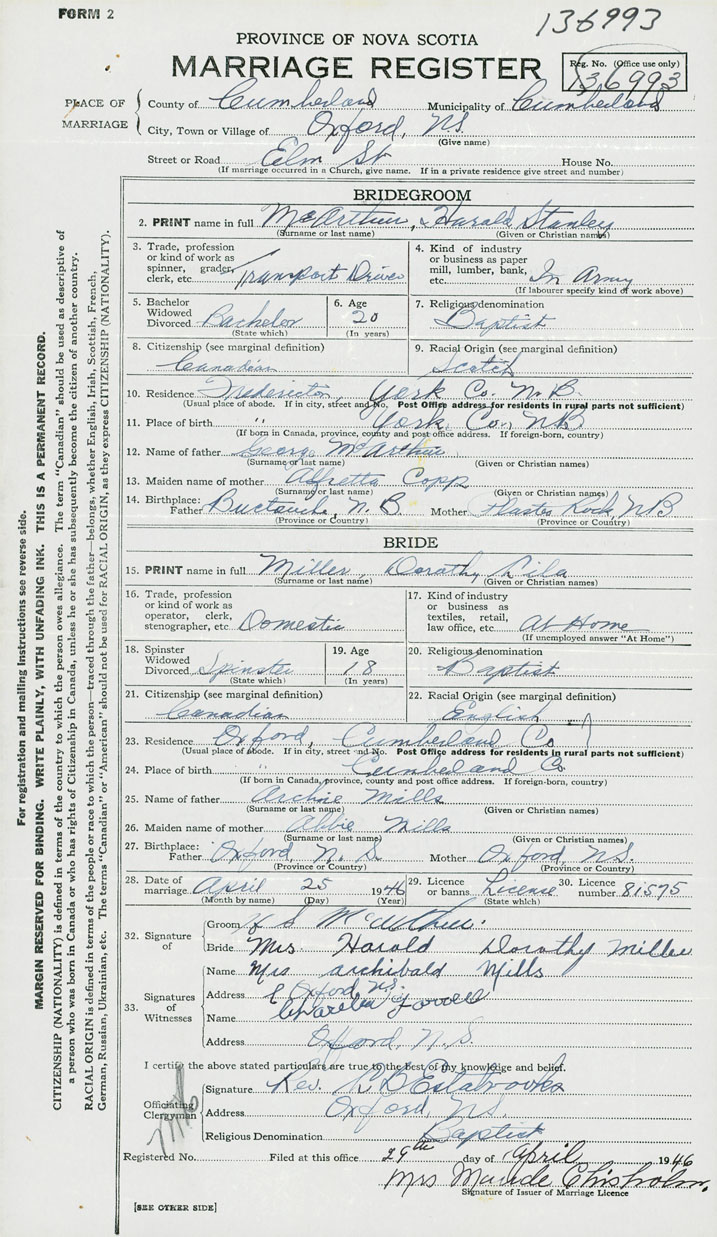 FORM 2
136993
PROVINCE OF NOVA SCOTIA
MARRIAGE REGISTER
Reg. No. (Office use only)
136993
PLACE OF MARRIAGE
County of Cumberland Municipality of Cumberland
City, Town or Village of Oxford, N.S.
(Give name)
Street or Road Elm St House No.
(If marriage occurred in a Church, give name. If in a private residence give street and number)
BRIDEGROOM
2. PRINT name in full McArthur, Harold Stanley
(Surname or last name) (Given or Christian names)
3. Trade, profession or kind of work as spinner, grader, clerk, etc. Transport Driver
4. Kind of industry or business as paper mill, lumber, bank, etc. In Army
(If labourer specify kind of work above)
5. Bachelor Widowed Divorced Bachelor
(State which)
6. Age 20
(In years)
7. Religious denomination
Baptist
8. Citizenship (see marginal definition)
Canadian
9. Racial Origin (see marginal definition)
Scotch
10. Residence Fredericton, York Co. N.B.
(Usual place of abode. If in city, street and No. Post Office address for residents in rural parts not sufficient)
11. Place of birth " York Co., NB
(If born in Canada, province, county and post office address. If foreign-born, country)
12. Name of father George McArthur
(Surname or last name) (Given or Christian names)
13. Maiden name of mother Alfretta Copp
(Surname or last name) (Given or Christian names)
14. Birthplace: Father Buctouche, N.B. Mother Plaster Rock, NB
(Province or Country) (Province or Country)
BRIDE
15. PRINT name in full Miller, Dorothy Lila
(Surname or last name) (Given or Christian names)
16. Trade, profession or kind of work as operator, clerk, stenographer, etc. Domestic
17. Kind of industry or business as textiles, retail, law office, etc. At Home
(If unemployed answer "At Home")
18. Spinster Widowed Divorced Spinster
(State which)
19. Age 18
(In years)
20. Religious denomination
Baptist
21. Citizenship (see marginal definition)
Canadian
22. Racial Origin (see marginal definition)
English
23. Residence Oxford, Cumberland Co
(Usual place of abode. If in city, street and No. Post Office address for residents in rural parts not sufficient)
24. Place of birth " Cumberland Co.
(If born in Canada, province, county and post office address. If foreign-born, country)
25. Name of father Archie Mills
(Surname or last name) (Given or Christian names)
26. Maiden name of mother Abbie Mills
(Surname or last name) (Given or Christian names)
27. Birthplace: Father Oxford, N.S Mother Oxford, N.S.
(Province or Country) (Province or Country)
28. Date of marriage April 25 1946
(Month by name) (Day) (Year)
29. Licence or banns License
(State which)
30. Licence number 81575
32. Signature of
Groom H S McArthur.
Bride Mrs Harold Dorothy Miller
33. Signatures of Witnesses
Name Mrs archibald Mills
Address Oxford, N.S.
Name
Address Oxford, N.S.
I certify the above stated particulars are true to the best of my knowledge and belief.
Officiating Clergyman
Signature Rev. Estabrooks
Address Oxford, N.S.
Religious Denomination Baptist
Registered No. Filed at this office 29th day of April 1946
Mrs Maude Chisholm.
Signature of Issuer of Marriage Licence
[SEE OTHER SIDE]
For registration and mailing instructions see reverse side.
MARGIN RESERVED FOR BINDING. WRITE PLAINLY, WITH UNFADING INK. THIS IS A PERMANENT RECORD.
CITIZENSHIP (NATIONALITY) is defined in terms of the country to which the person owes allegiance. The term "Canadian" should be used as descriptive of
a person who was born in Canada or who has rights of Citizenship in Canada, unless he or she has subsequently become the citizen of another country.
RACIAL ORIGIN is defined in terms of the people or race to which the person—traced through the father—belongs, whether English, Irish, Scottish, French,
German, Russian, Ukrainian, etc. The terms "Canadian" or "American" should not be used for RACIAL ORIGIN, as they express CITIZENSHIP (NATIONALITY).